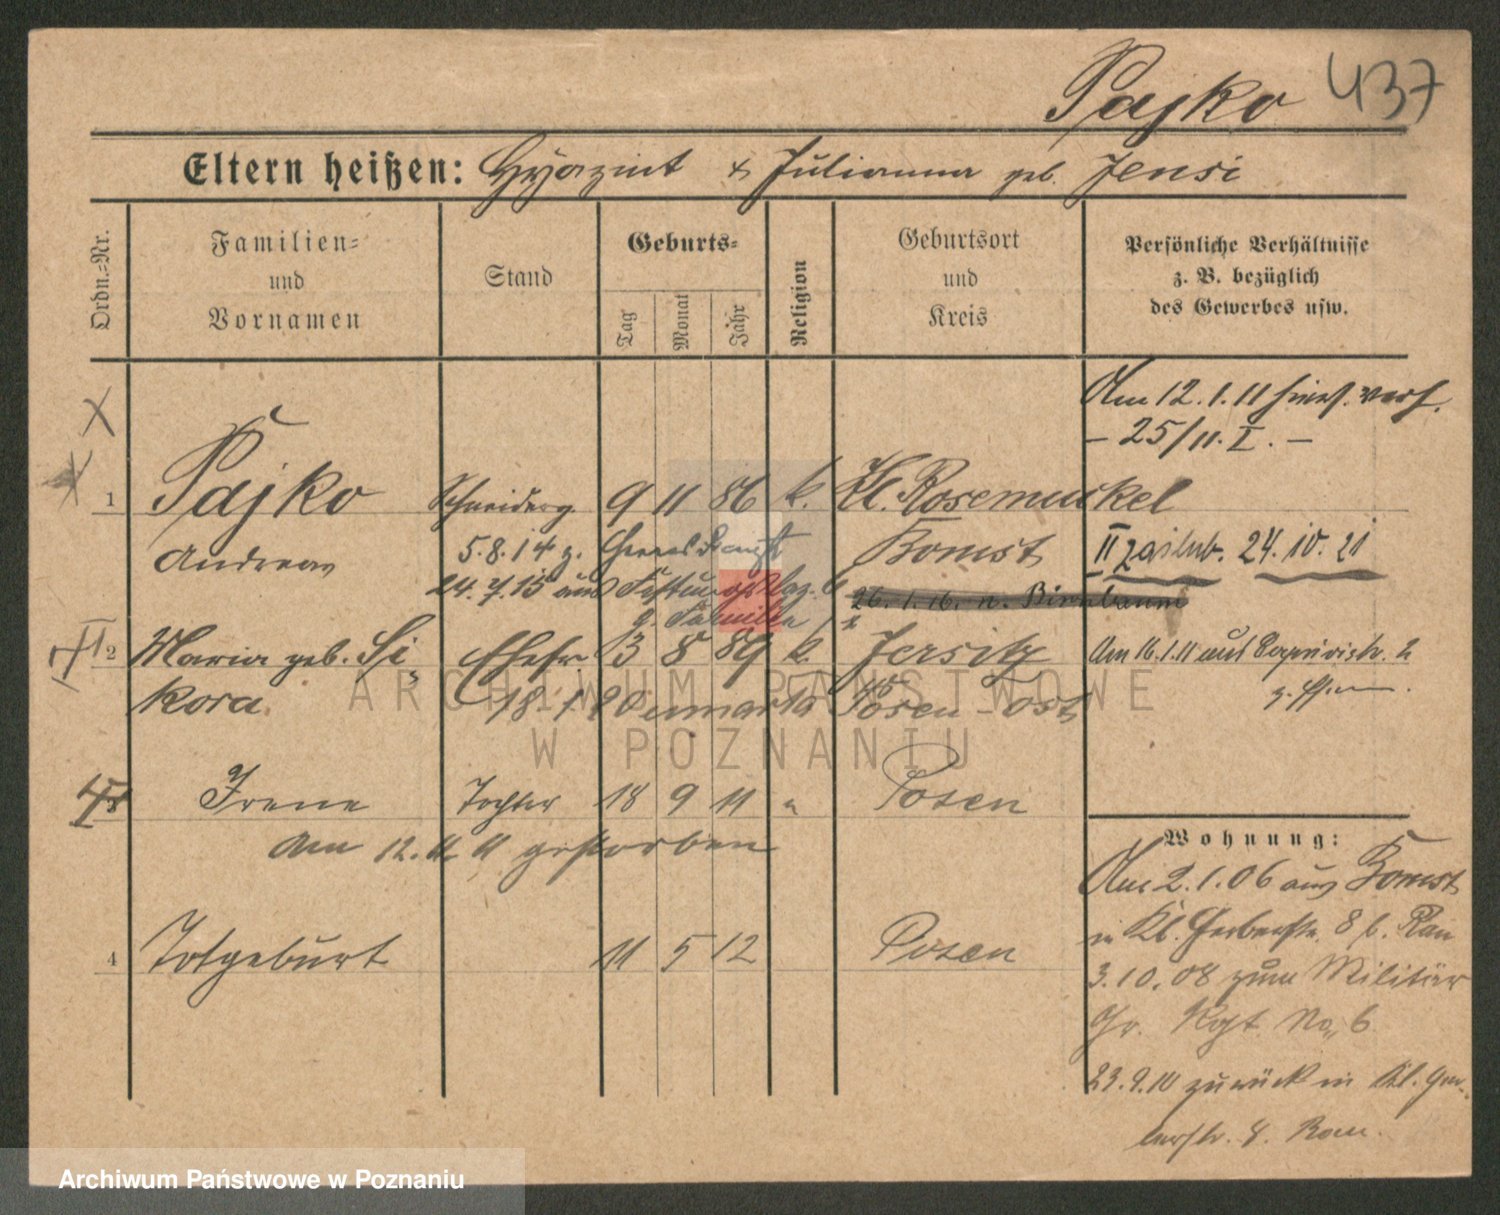 Pajko 437
Eltern heißen: Hyazint & Julianna geb. Jensi
Ordn.-Nr.
Familien-
und
Vornamen
Stand
Geburts-
Tag
Monat
Jahr
Religion
Geburtsort
und
Kreis
Persönliche Verhältnisse
z. B. bezüglich
des Gewerbes usw.
Am 12.1.11 verh.
– 25/11. I. –
1 Pajko Schneiderg. 9 11 86 k. Kl. Posemukel
Andreas 5.8.14 z. Bomst
II 24.10.21
24.7.15 aus
26.1.16. n. Birnbaum
z. Familie
2 Maria geb. Si- Ehefr. 13 8 89 k. Jersitz
kora 18.1. Posen-Ost
Am 16.1.11 aus
3 Irene Tochter 18 9 11 " Posen
Am 12.11.11 gestorben
Wohnung:
Am 2.1.06 aus Bomst
in Kl. Gerberstr. 8 b.
4 Totgeburt 11 5 12 Posen
3.10.08 zum Militär
Gr. Rgt. No. 6
23.9.10 zurück in Kl. Ger-
berstr. 8.
ARCHIWUM PAŃSTWOWE
W POZNANIU
Archiwum Państwowe w Poznaniu